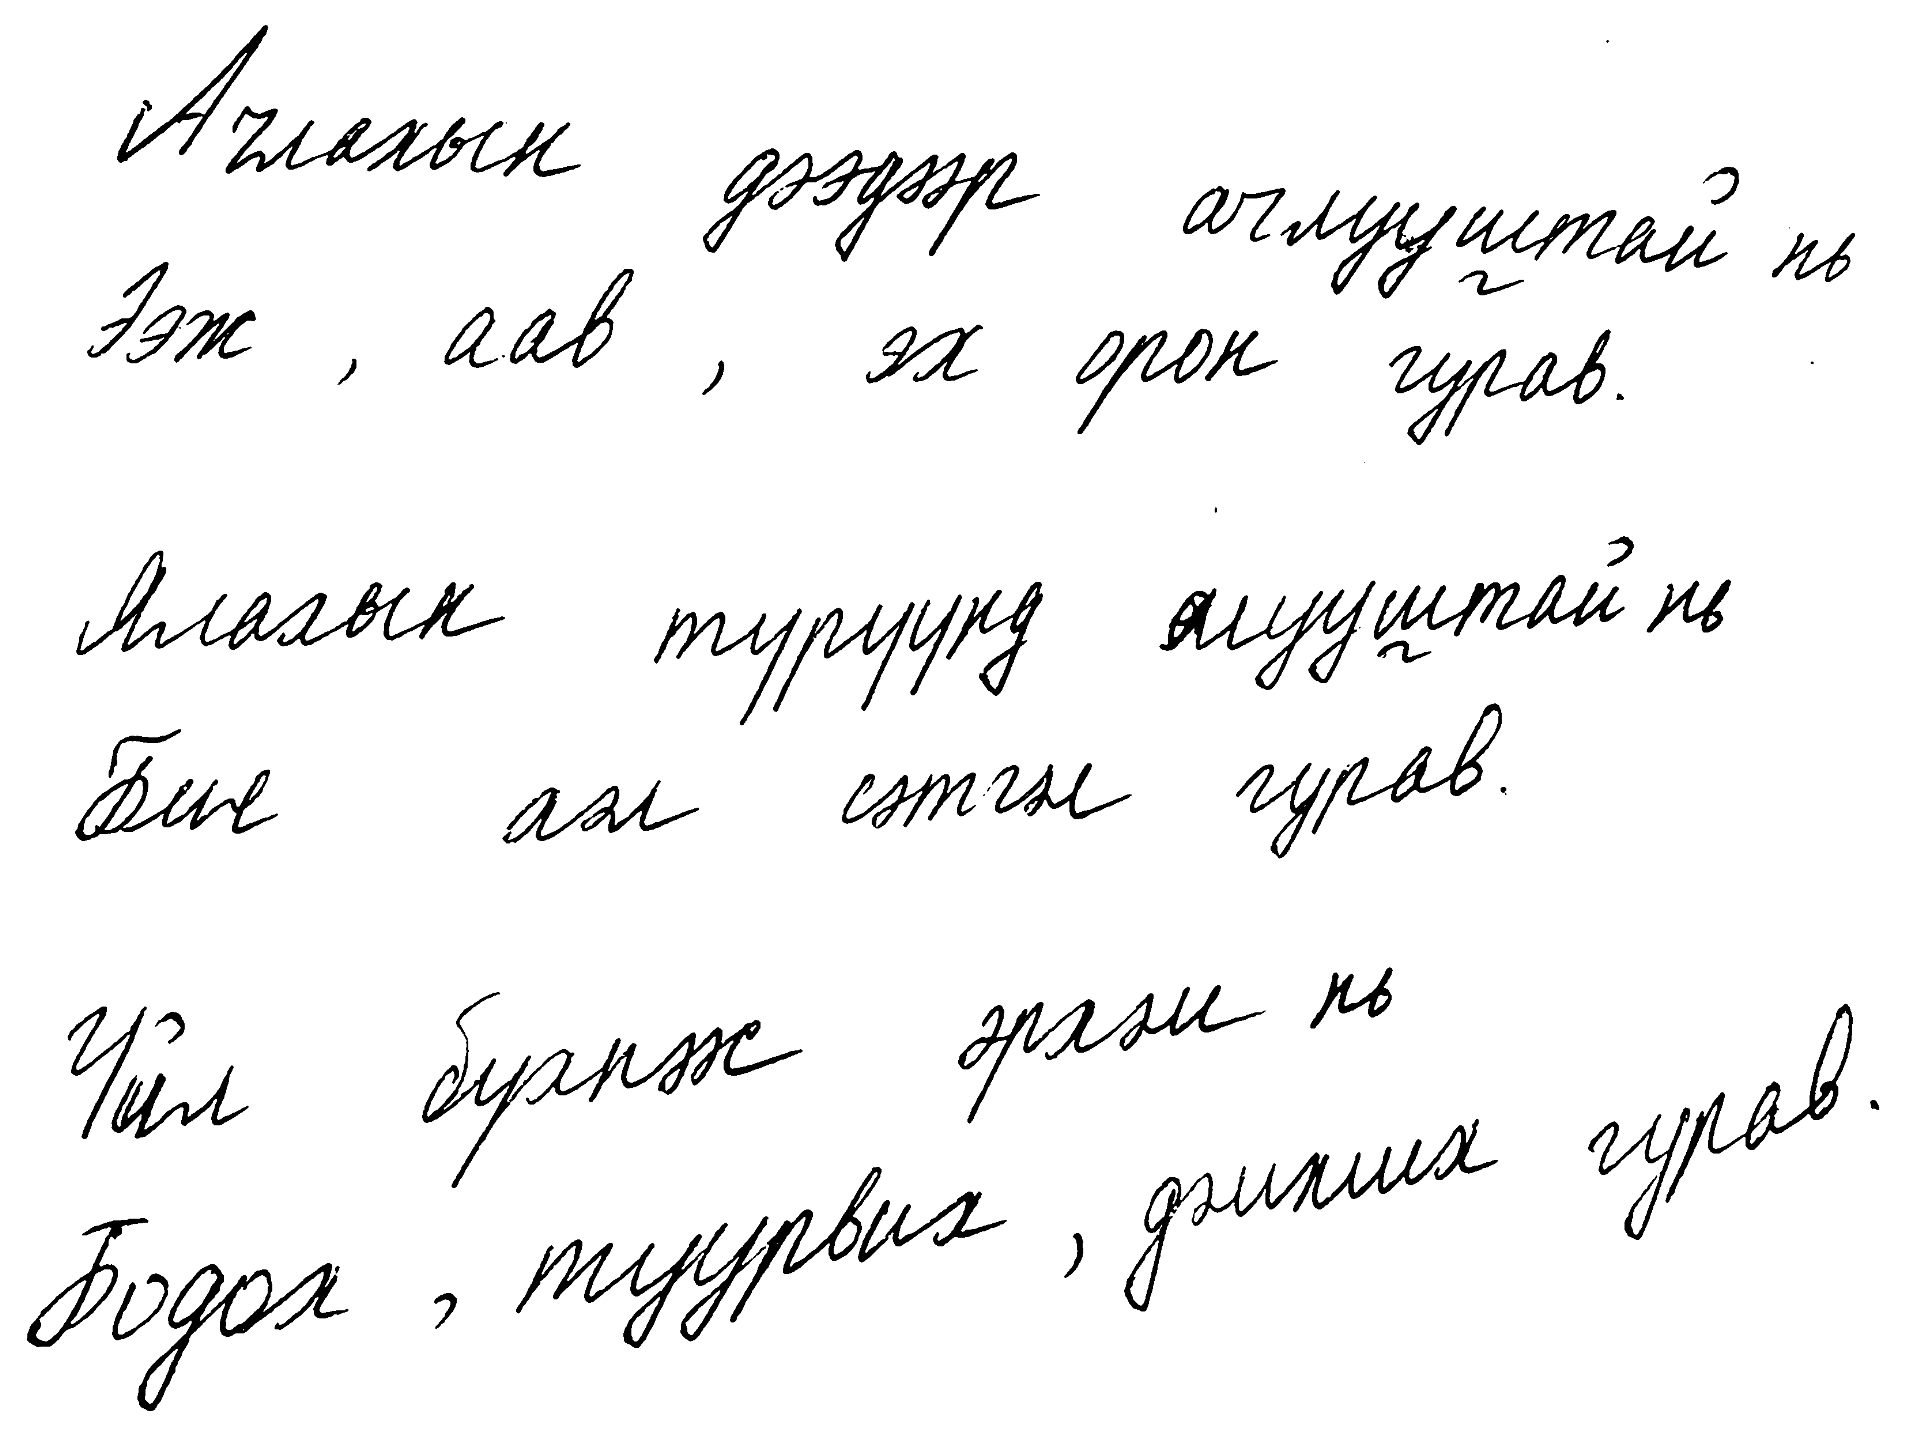 Ачлахын дээдээр ачлууштай нь
Ээж, аав, эх орон гурав.
Ялахын түрүүнд ялууштай нь
Бие ам сэтгэл гурав.
Үйл бүхнээс эрхэм нь
Бодох, туурвих, дэмжих гурав.